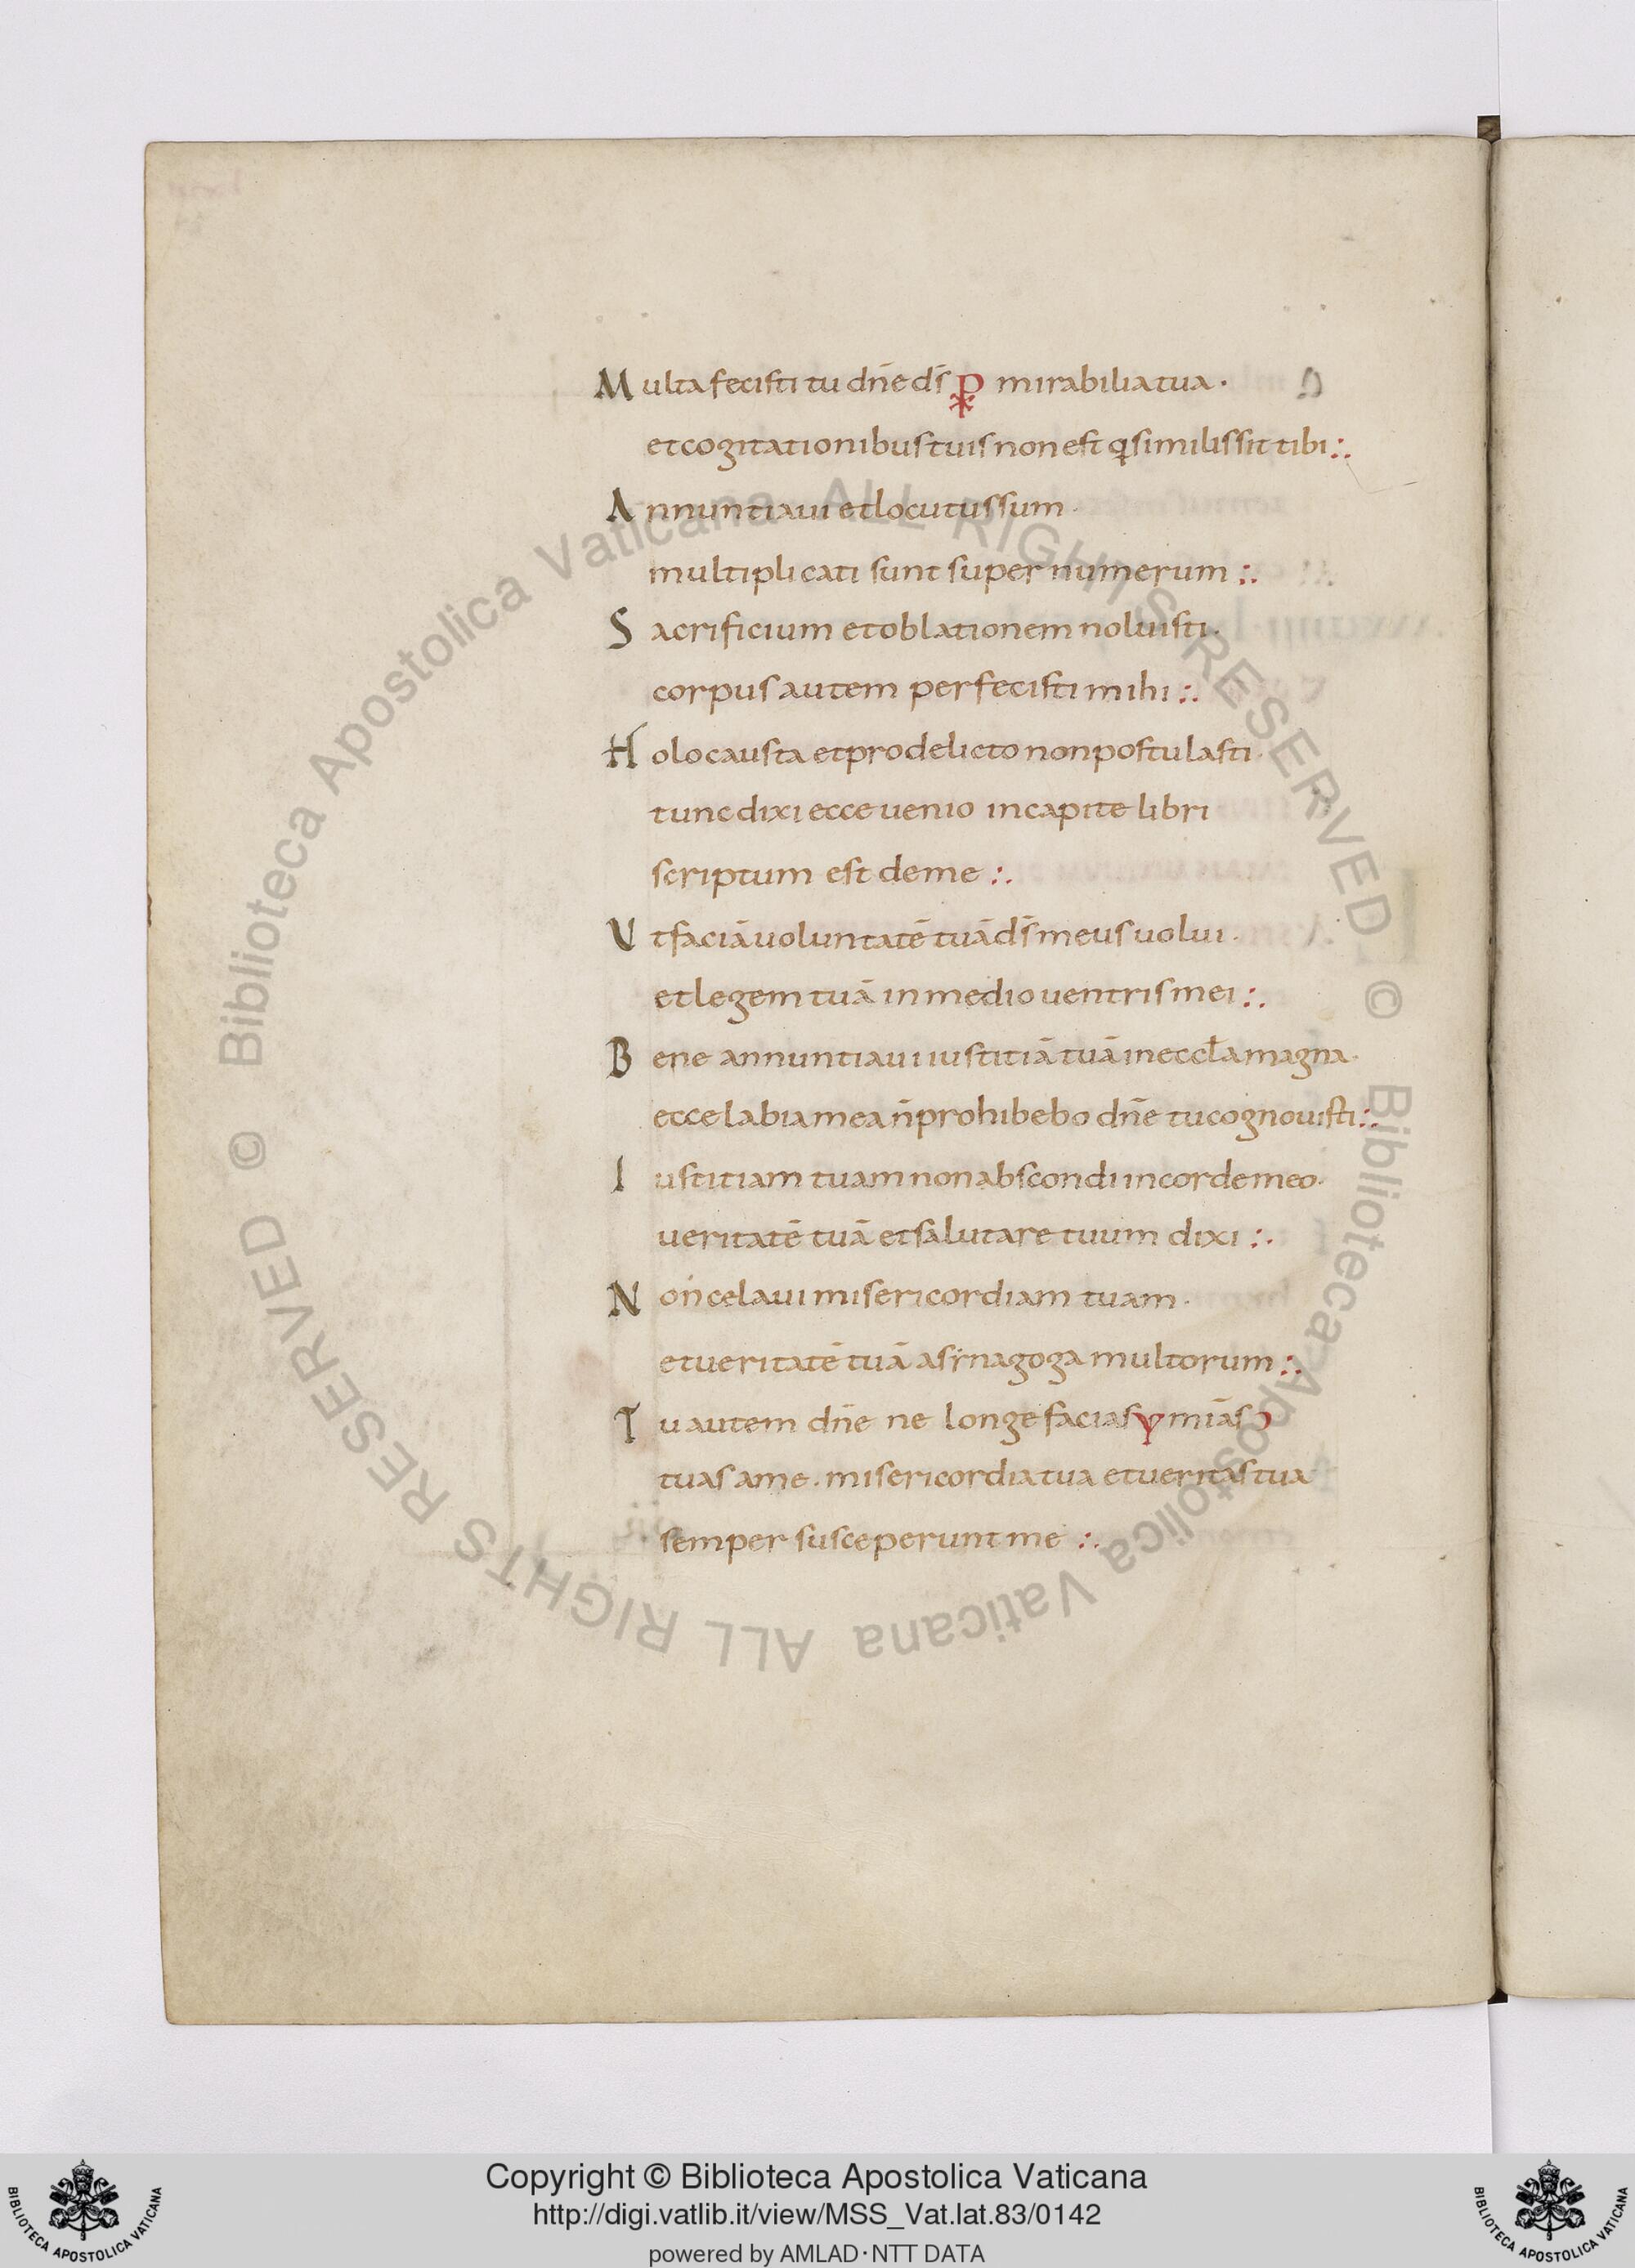 Multa fecisti tu dn̄e ds̄ ⳩ mirabilia tua ·
et cogitationibus tuis non est qͥ similis sit tibi :.
Annuntiaui et locutus sum ·
multiplicati sunt super numerum :.
Sacrificium et oblationem noluisti ·
corpus autem perfecisti mihi :.
Holocausta et pro delicto non postulasti ·
tunc dixi ecce uenio in capite libri
scriptum est de me :.
Vt faciā uoluntatē tuā ds̄ meus uolui ·
et legem tuā in medio uentris mei :.
Bene annuntiaui iustitiā tuā in eccła magna ·
ecce labia mea n̄ prohibebo dn̄e tu cognouisti :.
Iustitiam tuam non abscondi in corde meo ·
ueritatē tuā et salutare tuum dixi :.
Non celaui misericordiam tuam ·
et ueritatē tuā a sinagoga multorum :.
Tu autem dn̄e ne longe facias miās
tuas a me · misericordia tua et ueritas tua
semper susceperunt me :.
© Biblioteca Apostolica Vaticana ALL RIGHTS RESERVED © Biblioteca Apostolica Vaticana ALL RIGHTS RESERVED
Copyright © Biblioteca Apostolica Vaticana
http://digi.vatlib.it/view/MSS_Vat.lat.83/0142
powered by AMLAD·NTT DATA
BIBLIOTECA APOSTOLICA VATICANA
BIBLIOTECA APOSTOLICA VATICANA